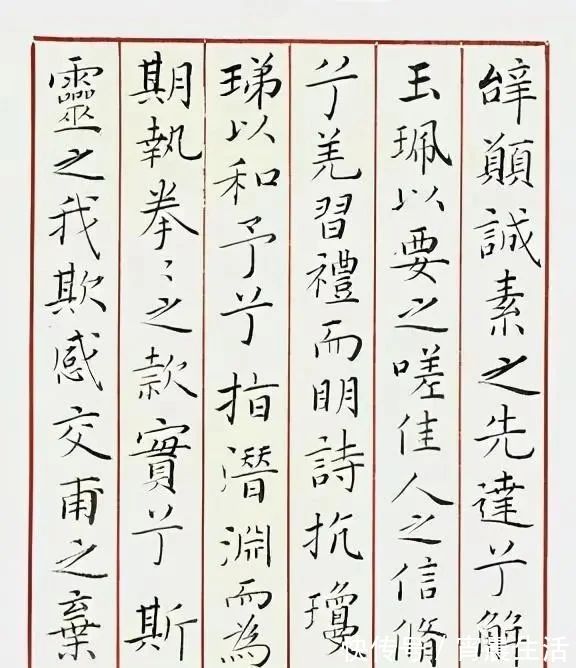 辭願誠素之先達兮解
玉珮以要之嗟佳人之信脩
兮羌習禮而明詩抗瓊
珶以和予兮指潛淵而為
期執拳〻之款實兮斯
靈之我欺感交甫之棄
快传号/生活